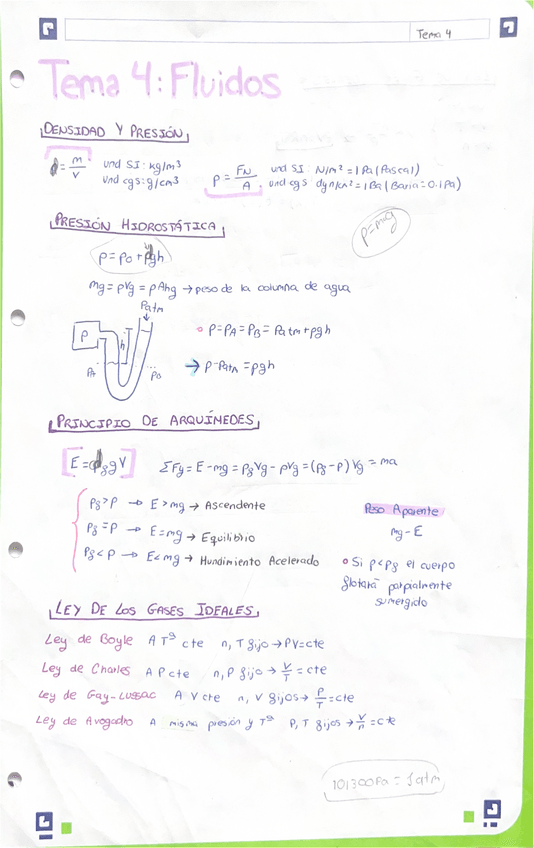 Tema 4
Tema 4: Fluidos
DENSIDAD Y PRESIÓN
ρ = m/V und SI: kg/m³
und cgs: g/cm³
P = FN/A und SI: N/m² = 1 Pa (Pascal)
und cgs dyn/cm² = 1Ba (Baria = 0.1Pa)
PRESIÓN HIDROSTÁTICA
P = P0 + ρgh
mg = ρVg = ρAhg → peso de la columna de agua
Patm
P
h
PA
PB
P = PA = PB = Patm + ρgh
→ P - Patm = ρgh
PRINCIPIO DE ARQUÍMEDES
E = ρf g V
ΣFy = E - mg = ρf Vg - ρVg = (ρf - ρ) Vg = ma
ρf > ρ → E > mg → Ascendente
ρf = ρ → E = mg → Equilibrio
ρf < ρ → E < mg → Hundimiento Acelerado
Peso Aparente
mg - E
Si ρ < ρf el cuerpo
flotará parpialmente
sumergido
LEY DE LOS GASES IDEALES
Ley de Boyle A Tª cte n, T fijo → PV = cte
Ley de Charles A P cte n, P fijo → V/T = cte
Ley de Gay-Lussac A V cte n, V fijos → P/T = cte
Ley de Avogadro A misma presión y Tª P, T fijos → V/n = cte
101300Pa = 1atm